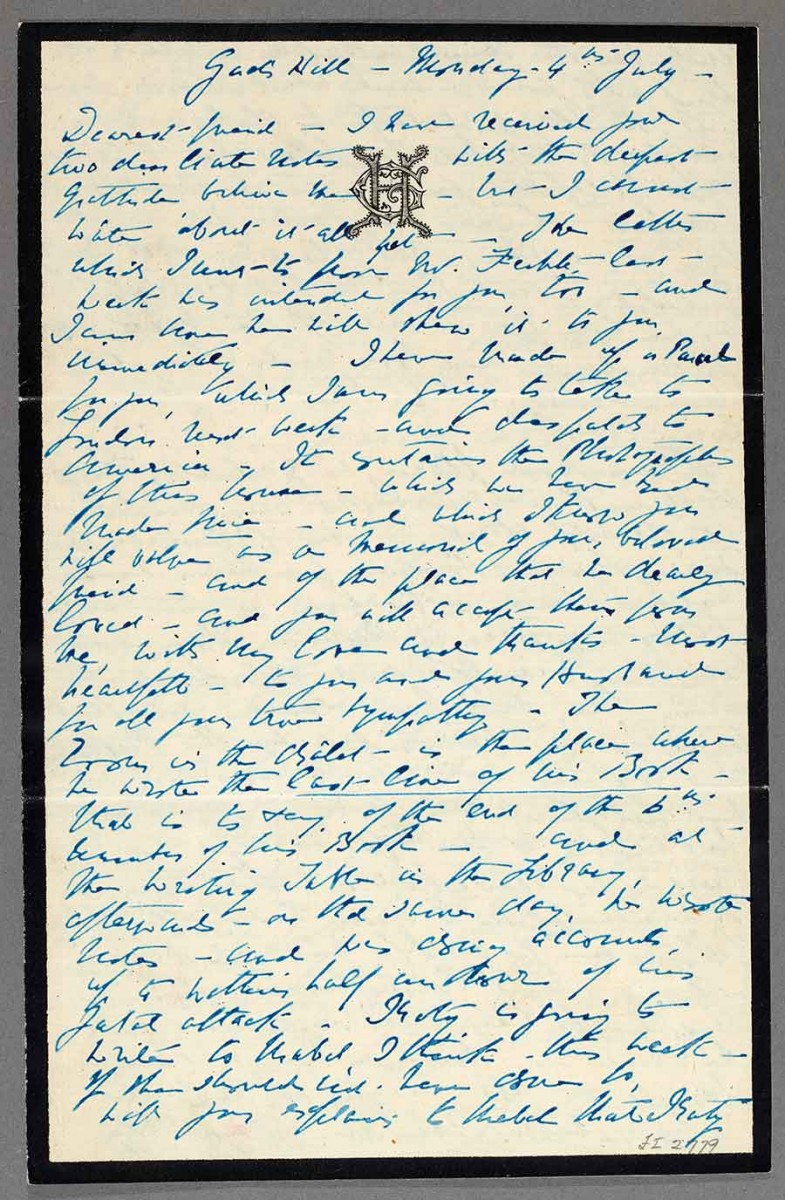 Gads Hill - Monday - 4th July -
Dearest friend - I have received your
two dear little notes with the deepest
gratitude believe me - but I cannot
write about it all yet - The letter
which I sent to from Mr. last
week was intended for you, too - and
I am sure he will shew it to you
immediately - I have made up a Parcel
for you, which I am going to take to
London next week - and despatch to
America - It contains the Photographs
of this house - which we have had
made since - and which I know you
will value as a memorial of your beloved
friend - and of the place that he dearly
loved - and you will accept them from
me, with my love and thanks - most
heartfelt - to you and your Husband
for all your true sympathy - The
Room in the Châlet - is the place where
he wrote the last line of his Book -
that is to say, of the end of the 6th
number of his Book - and at
the Writing Table in the Library,
afterwards - on the same day, he wrote
notes - and was doing accounts,
up to within half an hour of his
fatal attack - Katy is going to
write to Mabel I think - this week -
if she should not have done so,
will you explain to Mabel that Katy
FI 2779